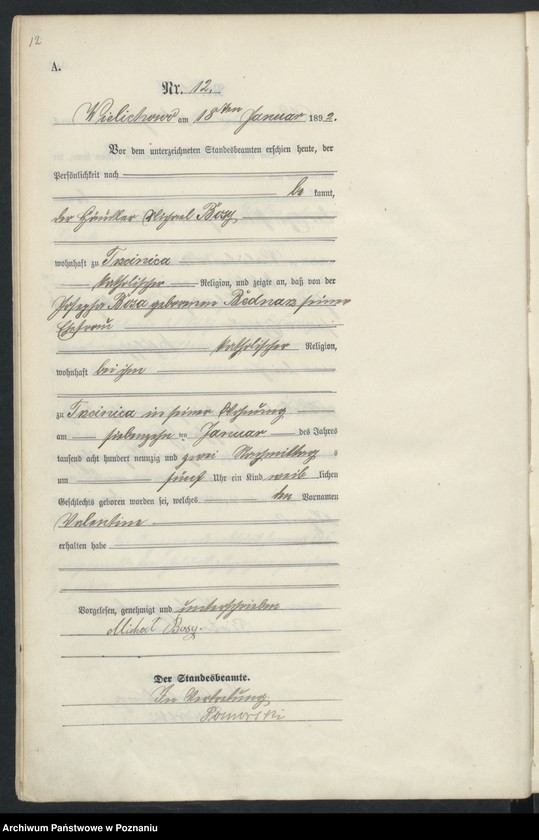 12
A.
Nr. 12.
Wielichowo am 18ten Januar 1892.
Vor dem unterzeichneten Standesbeamten erschien heute, der
Persönlichkeit nach
be kannt,
der Händler Michael Bosy
wohnhaft zu Trzcinica
katholischer Religion, und zeigte an, daß von der
Josepha Boza geborenen Bednarz seiner
Ehefrau
katholischer Religion,
wohnhaft bei ihm
zu Trzcinica in seiner Wohnung
am siebenzehnten Januar des Jahres
tausend acht hundert neunzig und zwei Nachmittags
um fünf Uhr ein Kind weiblichen
Geschlechts geboren worden sei, welches den Vornamen
Valentine
erhalten habe
Vorgelesen, genehmigt und unterschrieben
Michał Bosy.
Der Standesbeamte.
In Vertretung
Pomorski
Archiwum Państwowe w Poznaniu